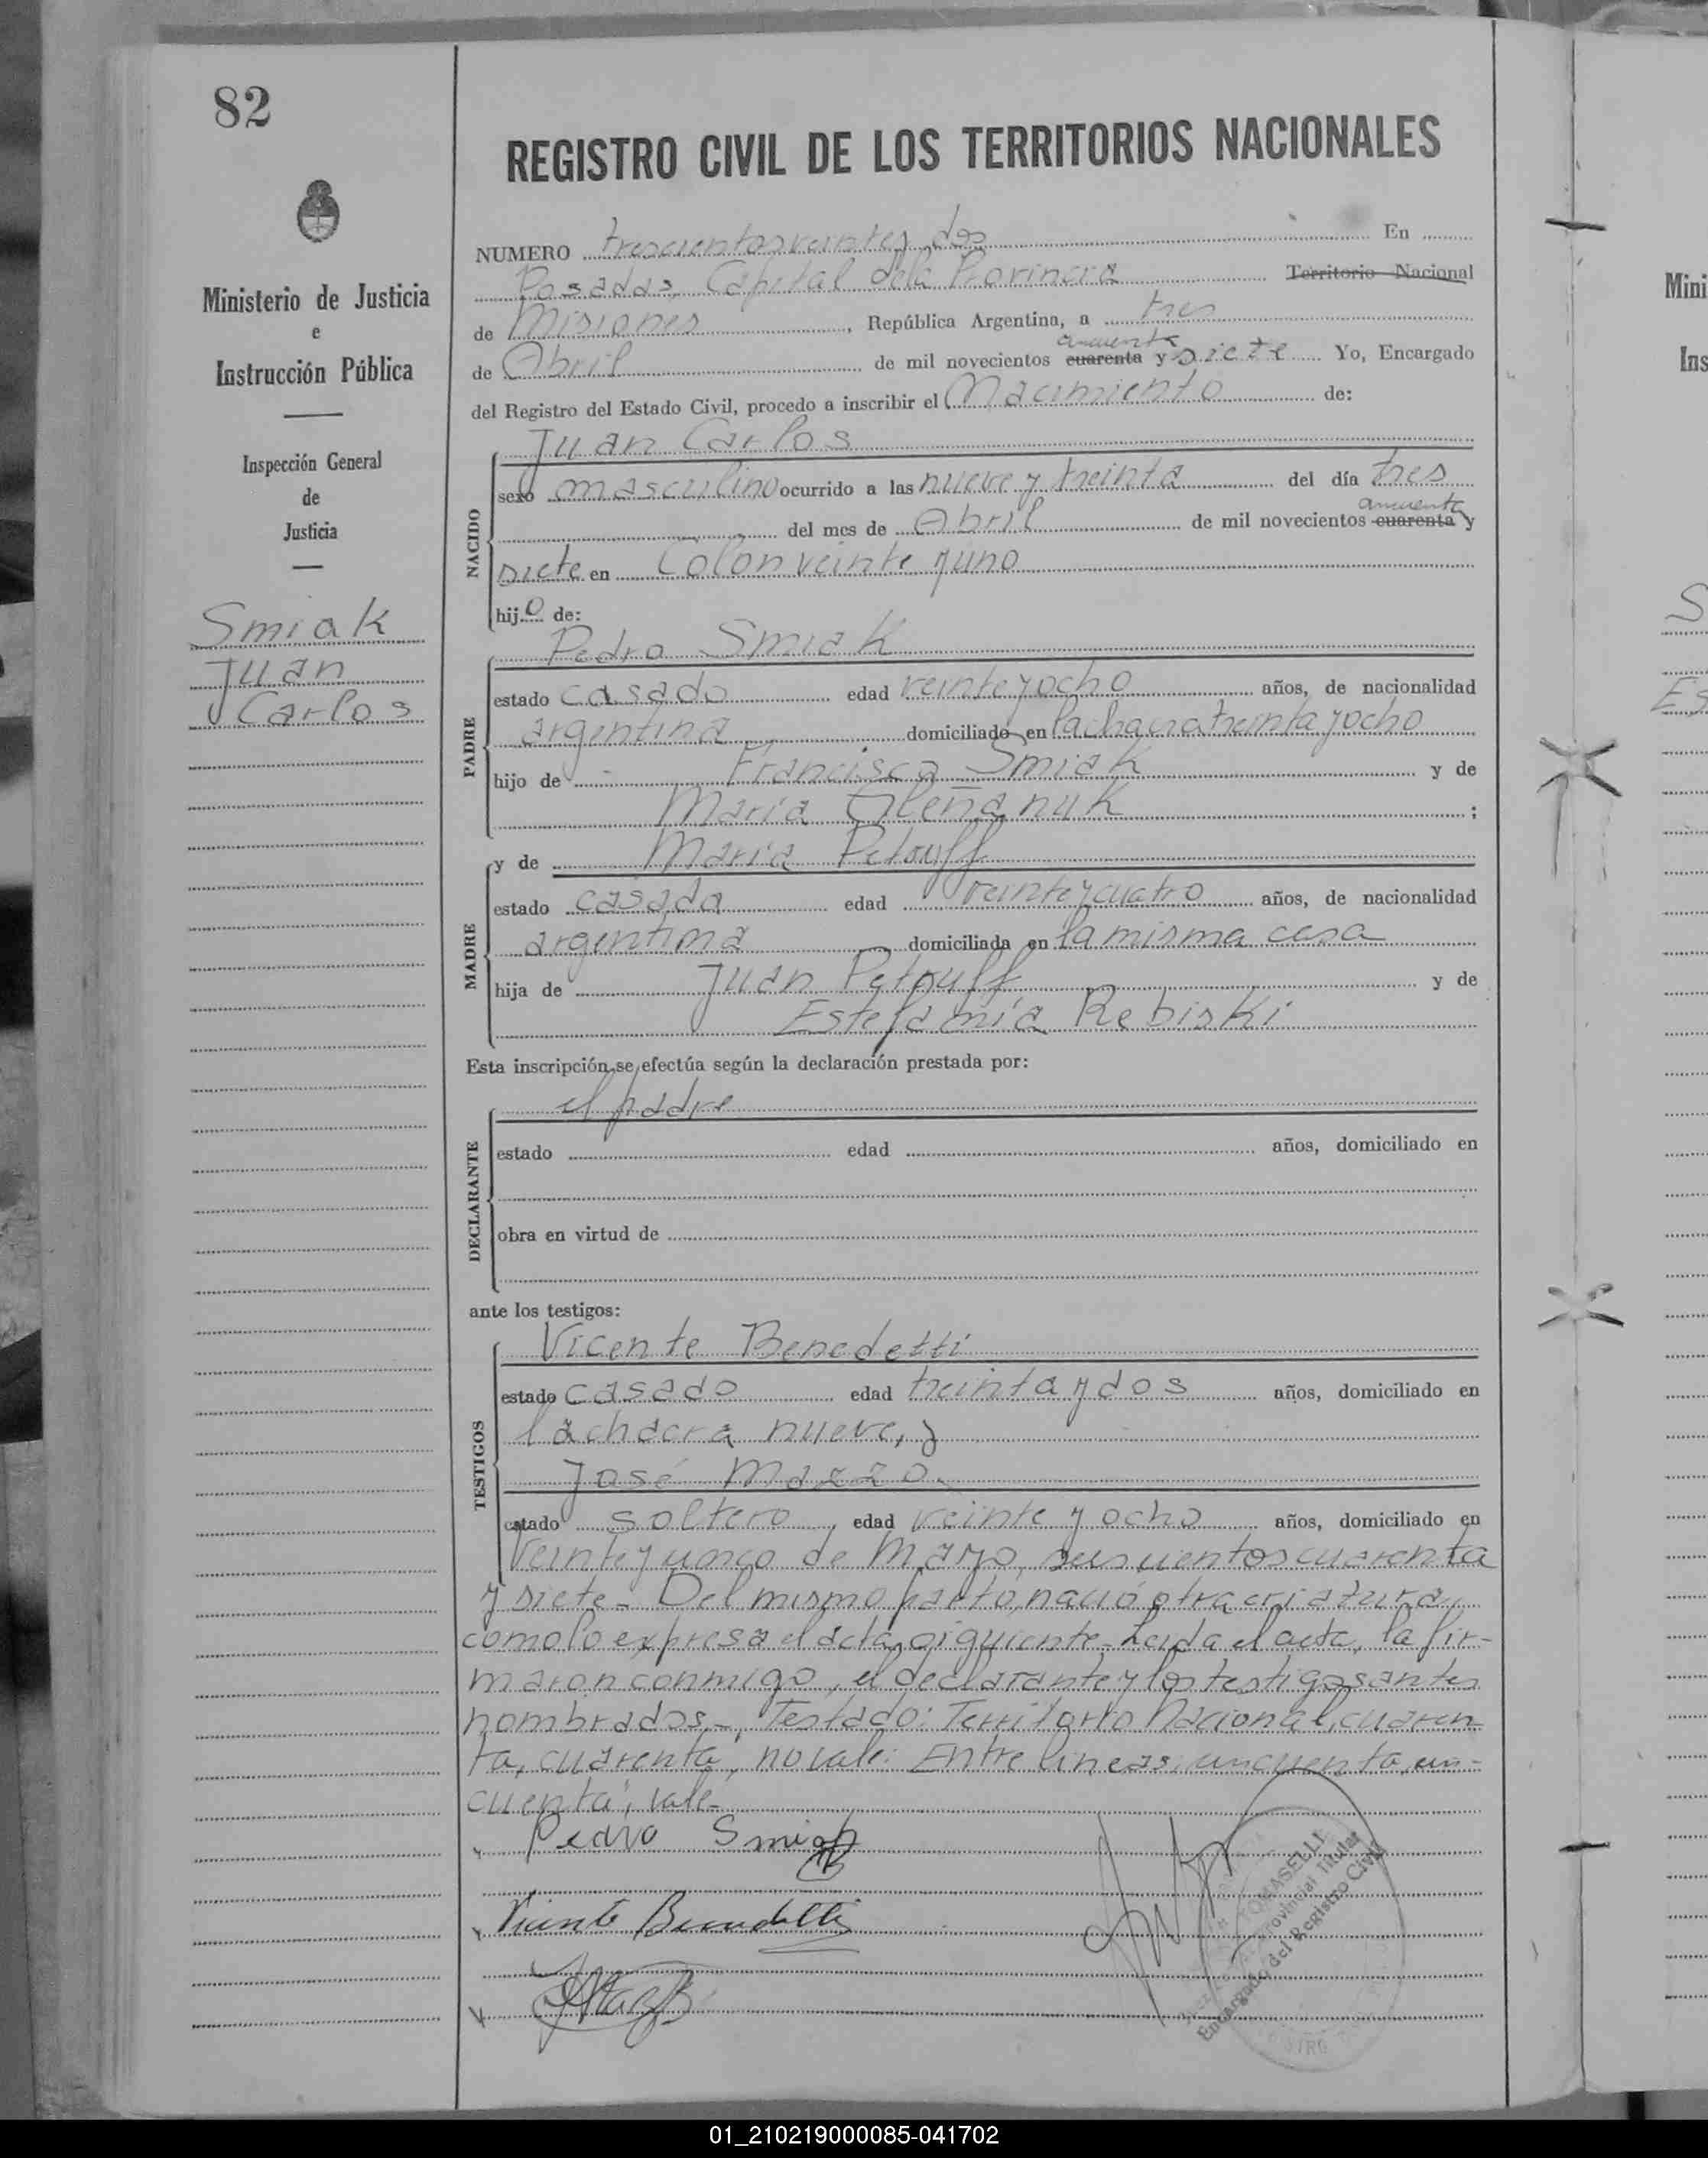 82
REGISTRO CIVIL DE LOS TERRITORIOS NACIONALES
Ministerio de Justicia
e
Instrucción Pública
Inspección General
de
Justicia
Smiak
Juan
Carlos
NUMERO trescientos veinte y dos En
Posadas, Capital de la Provincia Territorio Nacional
de Misiones, República Argentina, a tres
cincuenta
de Abril de mil novecientos cuarenta y siete Yo, Encargado
del Registro del Estado Civil, procedo a inscribir el Nacimiento de:
NACIDO
Juan Carlos
sexo masculino ocurrido a las nueve y treinta del día tres
cincuenta
del mes de Abril de mil novecientos cuarenta y
siete en Colón veinte y uno
hijo de:
PADRE
Pedro Smiak
estado casado edad veinte y ocho años, de nacionalidad
argentina domiciliado en la chacra treinta y ocho
hijo de Francisco Smiak y de
María ;
MADRE
y de María Petouff
estado casada edad veinte y cuatro años, de nacionalidad
argentina domiciliada en la misma casa
hija de Juan Petouff y de
Estefanía Rebiski
Esta inscripción se efectúa según la declaración prestada por:
DECLARANTE
el padre
estado edad años, domiciliado en
obra en virtud de
ante los testigos:
TESTIGOS
Vicente Benedetti
estado casado edad treinta y dos años, domiciliado en
la chacra nueve, y
José Mazzo.
estado soltero, edad veinte y ocho años, domiciliado en
Veinte y cinco de Mayo, seiscientos cuarenta
y siete- Del mismo parto, nació otra criatura,
como lo expresa el acta siguiente- Leida el acta, la fir-
maron conmigo, el declarante y los testigos antes
nombrados- Testado: Territorio Nacional, cuaren
ta, cuarenta, no vale: Entre lineas: cincuenta, cin-
cuenta, vale-
Pedro Smiak
Vicente Benedetti
TOMASELLI
Provincial Titular
Encargado del Registro Civil
01_210219000085-041702